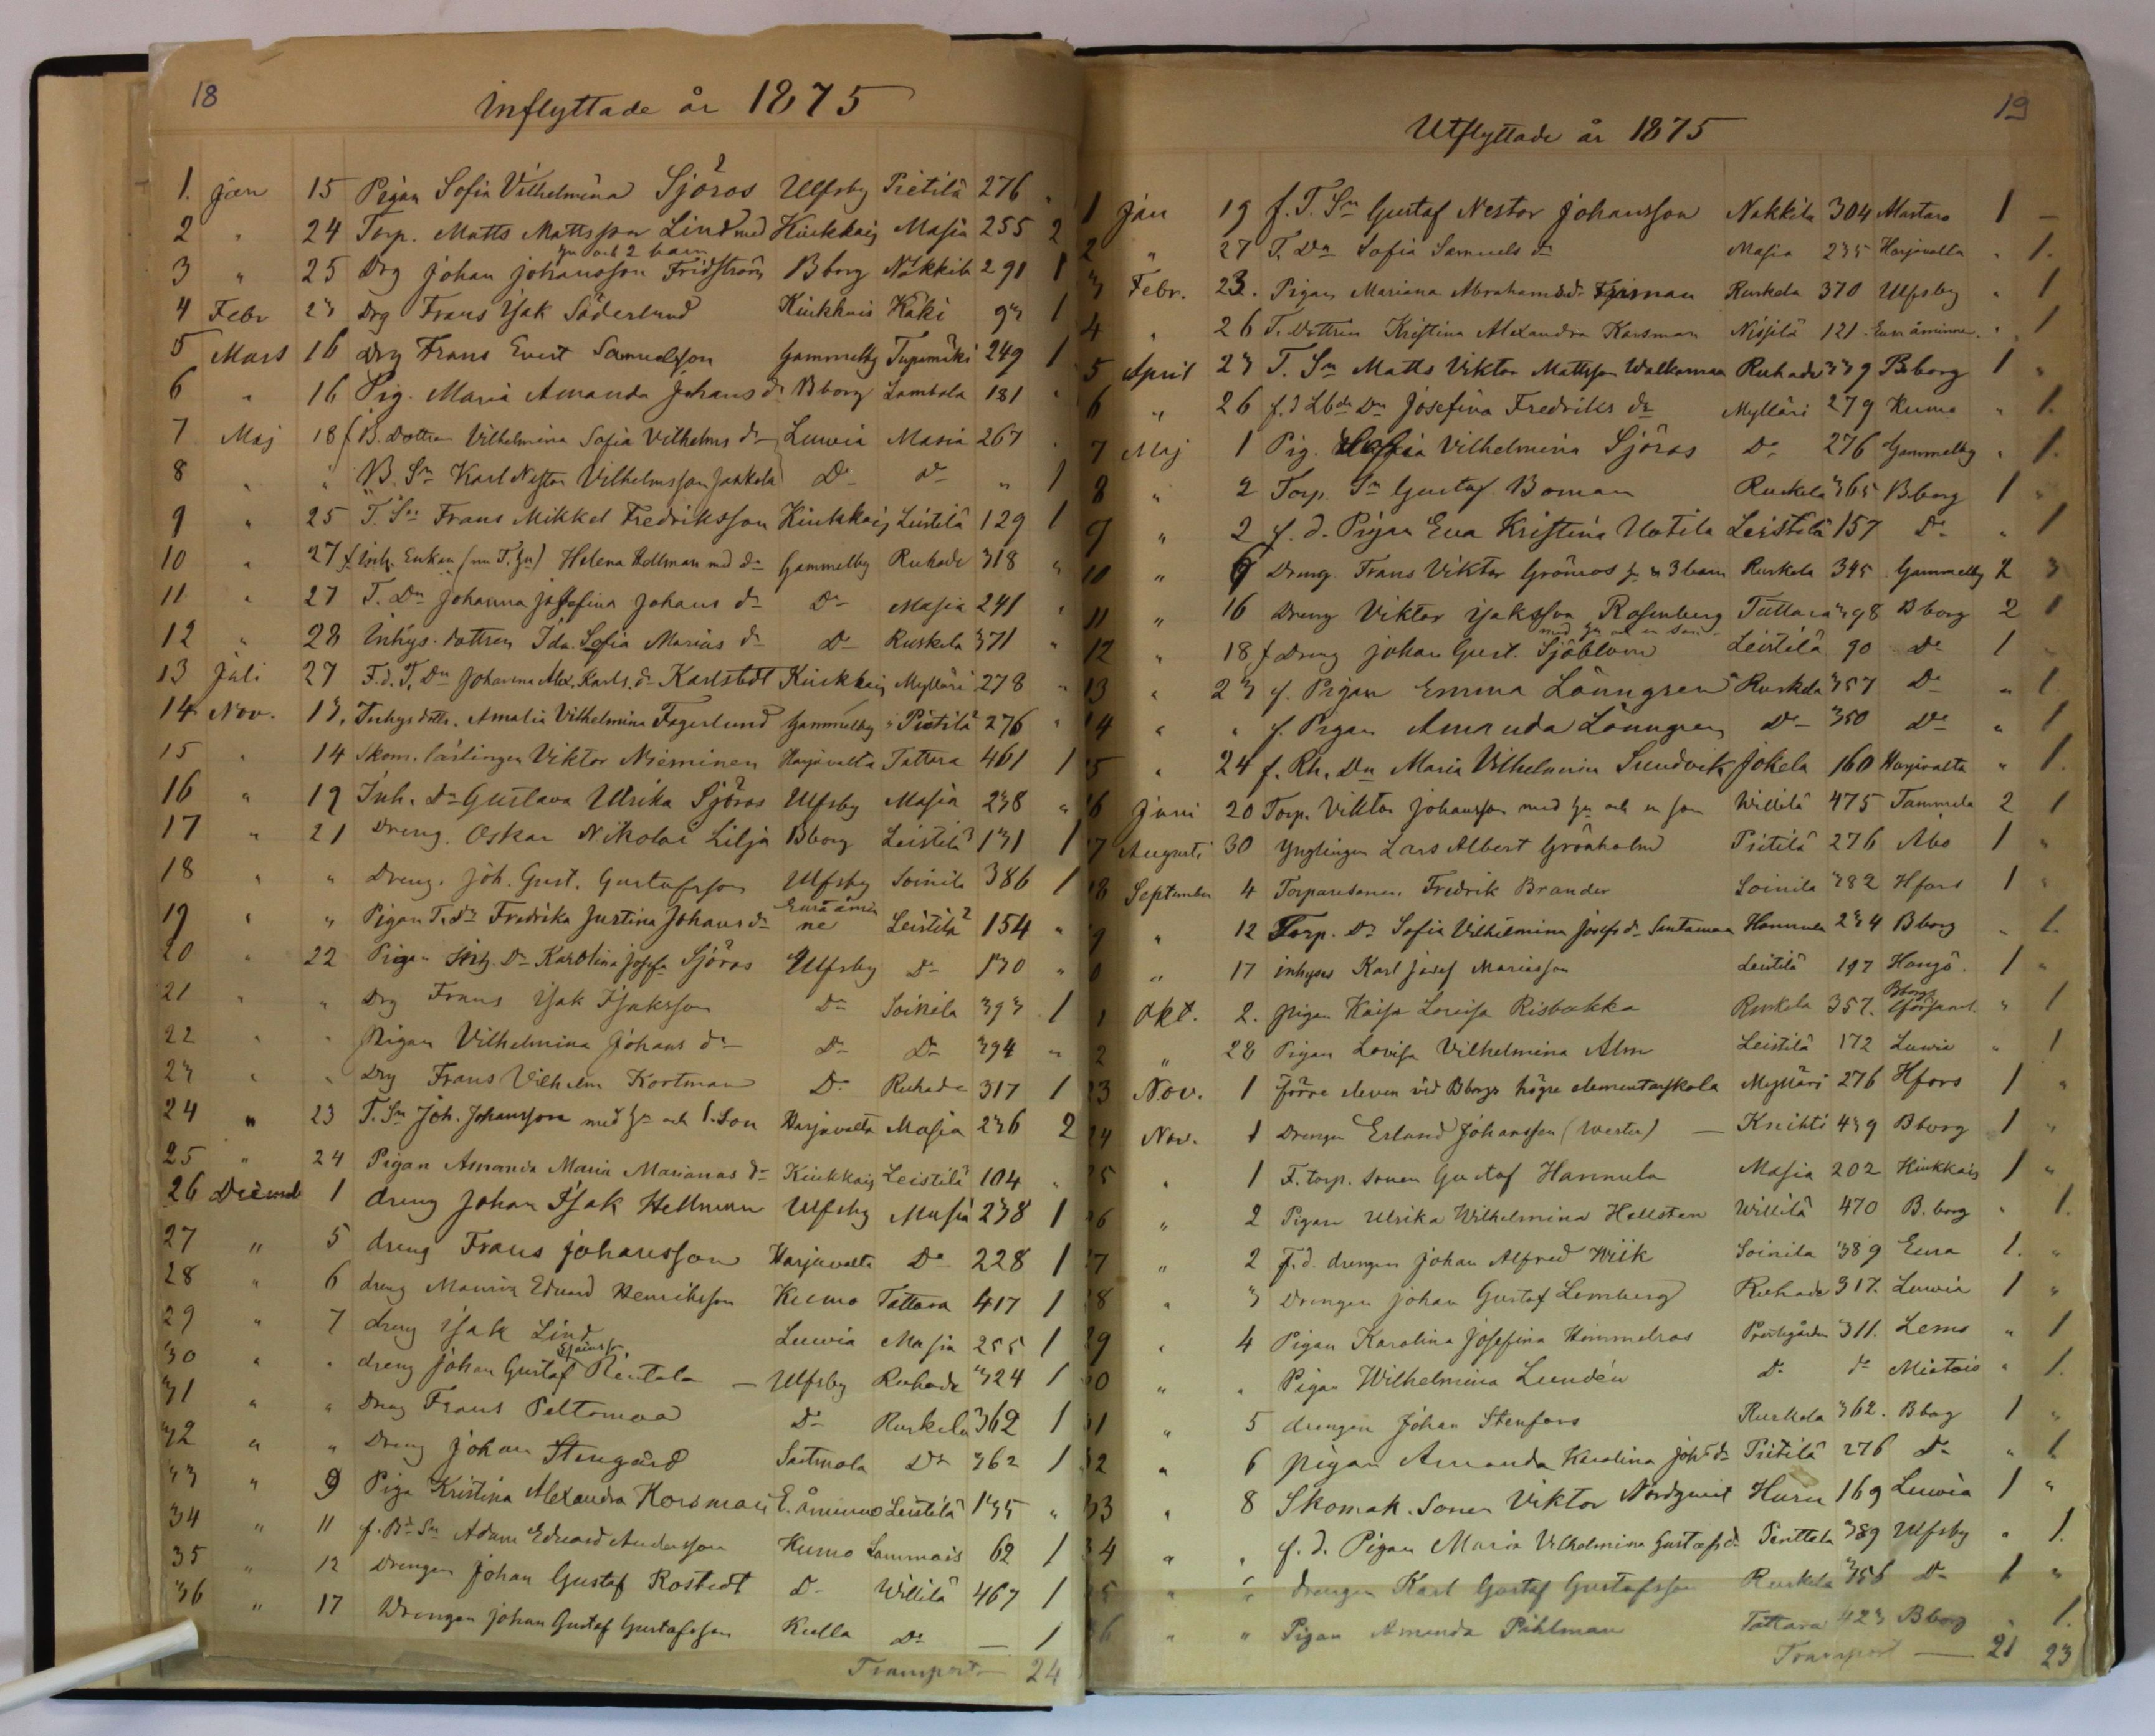 18
Inflyttade år 1875
1. Jan 15 Pigan Sofia Vilhelmina Sjöros Ulfsby Pietilä 276 "
2 " 24 Torp. Matts Mattsson Lind med Kiukkais Masia 255 2
hu och 2 barn
3 " 25 Drg Johan Johansson Fridström Bborg Nakkila 291 1
4 Febr 23 Drg Frans Isak Söderlund Kiukkais Kaki 93 1
5 Mars 16 Drg Frans Evert Samuelsson Gammelby Tupamäki 249 1
6 " 16 Pig. Maria Amanda Johans dr Bborg Lambola 181 "
7 Maj 18 B. Dottren Vilhelmina Sofia Vilhelms dr Luvia Masia 267 "
8 " " B. Sn Karl Nestor Vilhelmsson Jaakola Do do " 1
9 " 25 T. Sn Frans Mikkel Fredriksson Kiukkais Leistilä 129 1
10 " 27 f. Inh. Enkan (nu T. hu) Helena Hellman med dr Gammelby Ruhade 318 "
11 " 27 T. Dr Johanna Josefina Johans dr Do Masia 241 "
12 " 28 Inhys. dottren Ida Sofia Marias dr Do Ruskela 371 "
13 Juli 27 F.d. T. Dr Johanna Alex. Karls. dr Karlstedt Kiukkais Mylläri 278 "
14 Nov. 13. Inhys dottr. Amalia Vilhelmina Fagerlund Gammelby Pietilä 276 "
15 " 14 Skom. lärlingen Viktor Nieminen Harjavalta Tattara 461 1
16 " 19 Inh. Dr Gustava Ulrika Sjöros Ulfsby Masia 238 "
17 " 21 Dreng. Oskar Nikolai Lilja Bborg Leistilä 131 1
18 " " Dreng. Joh. Gust. Gustafsson Ulfsby Soinila 386 1
19 " " Pigan T. dr Fredrika Justina Johans dr Euraåminne Leistilä 154 "
20 " 22 Pigan Inh. Dr Karolina Josefa Sjöros Ulfsby Do 130 "
21 " " Drg Frans Isak Isaksson Do Soinila 393 1
22 " " Pigan Vilhelmina Johans dr Do Do 394 "
23 " " Drg Frans Vilhelm Kortman Do Ruhade 317 1
24 " 23 T. Sn Joh. Johansson med hu och 1. Son Harjavalta Masia 236 2
25 " 24 Pigan Amanda Maria Marianas dr Kiukkais Leistilä 104 "
26 Decemb 1 dreng Johan Isak Hellman Ulfsby Masia 238 1
27 " 5 dreng Frans Johansson Harjavalta Do 228 1
28 " 6 dreng Mauriz Eduard Henriksson Kumo Tattara 417 1
29 " 7 dreng Isak Lind Luvia Masia 255 1
30 " " dreng Johan Gustaf Rentala Ulfsby Ruhade 324 1
31 " " Dreng Frans Peltomaa Do Ruskela 362 1
32 " " Dreng Johan Stengård Sastmola Do 362 1
33 " 9 Piga Kristina Alexandra Korsman E. åminne Leistilä 135 "
34 " 11 f. Bd Sn Adam Eduard Andersson Kumo Lammais 62 1
35 " 12 Drengen Johan Gustaf Rostedt Do Villilä 467 1
36 " 17 Drengen Johan Gustaf Gustafsson Kulla Do — 1
Transport — 24
19
Utflyttade år 1875
1 Jan 19 f. T. Sn Gustaf Nestor Johansson Nakkila 304 Alastaro 1 —
2 " 27 T. Dr Sofia Samuels dr Masia 235 Harjavalta " 1.
3 Febr. 23. Pigan Mariana Abrahamsdr Ruskela 370 Ulfsby " 1
4 " 26 T. Dottren Kristina Alexandra Korsman 121 Euraåminne " 1
5 April 23 T. Sn Matts Viktor Mattsson Walkamaa Ruhade 339 Bborg 1 "
6 " 26 f.d Lbde Dr Josefina Fredriks dr Mylläri 279 Kumo " 1.
7 Maj 1 Pig. Sofia Vilhelmina Sjöros Do 276 Gammelby " 1.
8 " 2 Torp. Sn Gustaf Boman Ruskela 365 Bborg 1 "
9 " 2 f. d. Pigan Eva Kristina Uotila Leistilä 157 Do " 1
10 " 9 Dreng. Frans Viktor Grönroos hu o 3 barn Ruskela 345 Gammelby 2 3
11 " 16 Dreng Viktor Isaksson Rosenberg Tattara 398 Bborg 2 1
med hu och en son
12 " 18 f Dreng Johan Gust. Sjöblom Leistilä 90 Do 1 "
13 " 23 f. Pigan Emma Lönngren Ruskela 357 Do " 1
14 " " f. Pigan Amanda Lönngren Do 350 Do " 1
15 " 24 f. Rh. Dr Maria Vilhelmina Sundvik Jokela 160 Harjavalta " 1.
16 Juni 20 Torp. Viktor Johansson med hu och en son Willilä 475 Tammela 2 1
17 Augusti 30 Ynglingen Lars Albert Grönholm Pietilä 276 Åbo 1 "
18 September 4 Torparesonen Fredrik Brander Soinila 382 Hfors 1 "
19 " 12 Torp. Dr Sofia Vilhelmina Josefs dr Santamaa Hannula 234 Bborg " 1.
20 " 17 inhyses Karl Josef Mariasson Leistilä 197 Hangö. 1 "
21 Okt. 2. pigan Kaisa Lovisa Risbakka Ruskela 357. Bborgs lförsaml. " 1
22 " 28 Pigan Lovisa Vilhelmina Alm Leistilä 172 Luvia " 1
23 Nov. 1 förre eleven vid Bborgs högre elementarskola Mylläri 276 Hfors 1 "
24 Nov. 1 Drengen Erland Johansson (Wester) — Knihti 439 Bborg 1 "
25 " 1 F. torp. sonen Gustaf Hannula Masia 202 Kiukkais 1 "
26 " 2 Pigan Ulrika Wilhelmina Hellsten Willilä 470 B.borg " 1.
27 " 2 f.d. drengen Johan Alfred Wiik Soinila 389 Eura 1. "
28 " 3 Drengen Johan Gustaf Lemberg Ruhade 317. Luvia 1 "
29 " 4 Pigan Karolina Josefina Himmelroos Prestgården 311. Lemo " 1
30 " " Pigan Wilhelmina Lundén Do do Mietois " 1.
31 " 5 drengen Johan Stenfors Ruskela 362. Bborg 1 "
32 " 6 pigan Amanda Karolina Johs dr Pietilä 276 Do " 1
33 " 8 Skomak. Sonen Viktor Nordqvist Haru 169 Luvia 1 "
34 " " f. d. Pigan Maria Vilhelmina Gustafs dr Penttala 389 Ulfsby " 1.
35 " " drengen Karl Gustaf Gustafsson Ruskela 356 Do 1 "
36 " " Pigan Amanda Pihlman Tattara 423 Bborg " 1.
Transport — 21 23